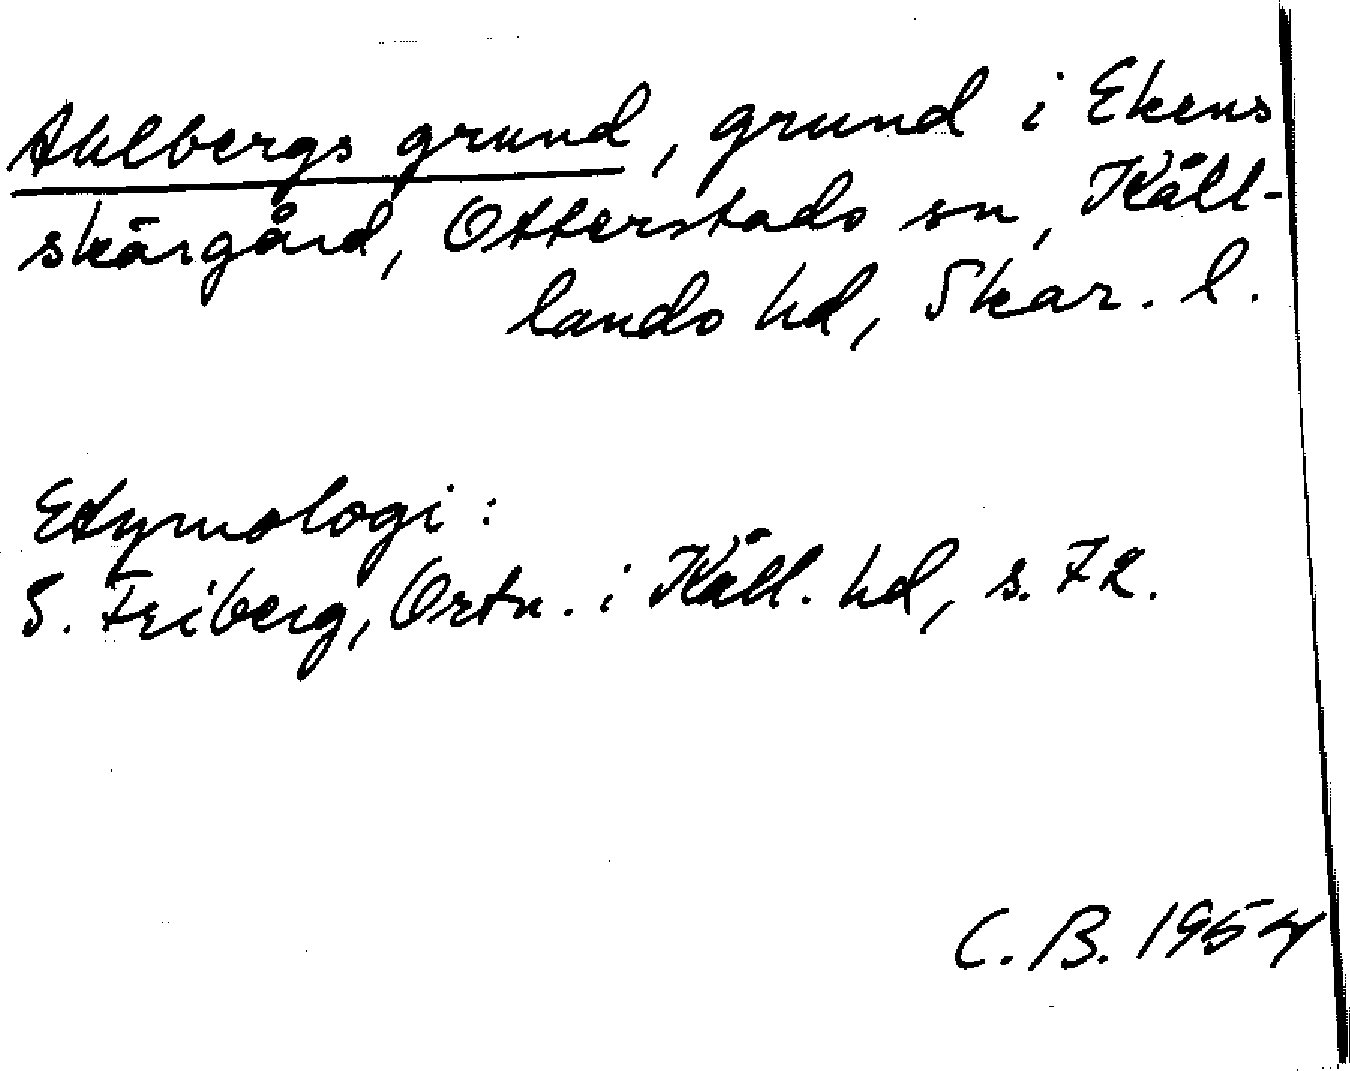 Ahlbergs grund, grund i Ekens
skärgård, Otterstads sn, Käll-
lands hd, Skar. l.
Etymologi:
S. Friberg, Ortn. i Käll. hd, s. 72.
C. B. 1954